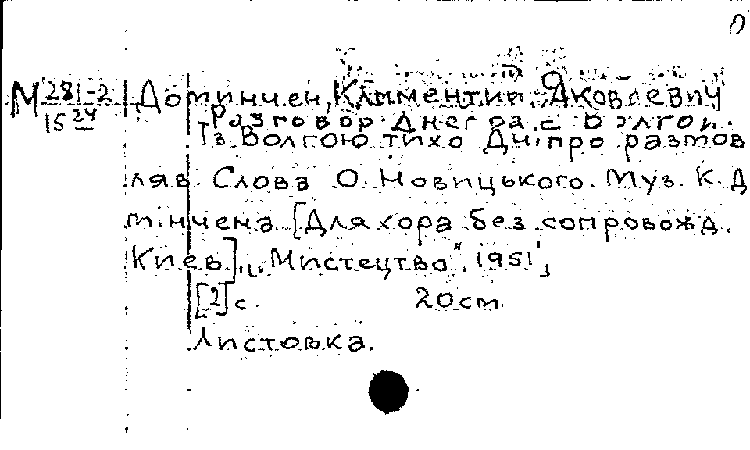 М 281-2 Доминчен, Климентий Яковлевич
15 24 Разговор Днепра с Волгой.
Із Волгою тихо Дніпро размов
ляв Слова О. Новицького. Муз. К. Д
мінчена [Для хора без сопровожд.
Киев], „Мистецтво", 1951,
[2] с. 20 cm
Листовка.